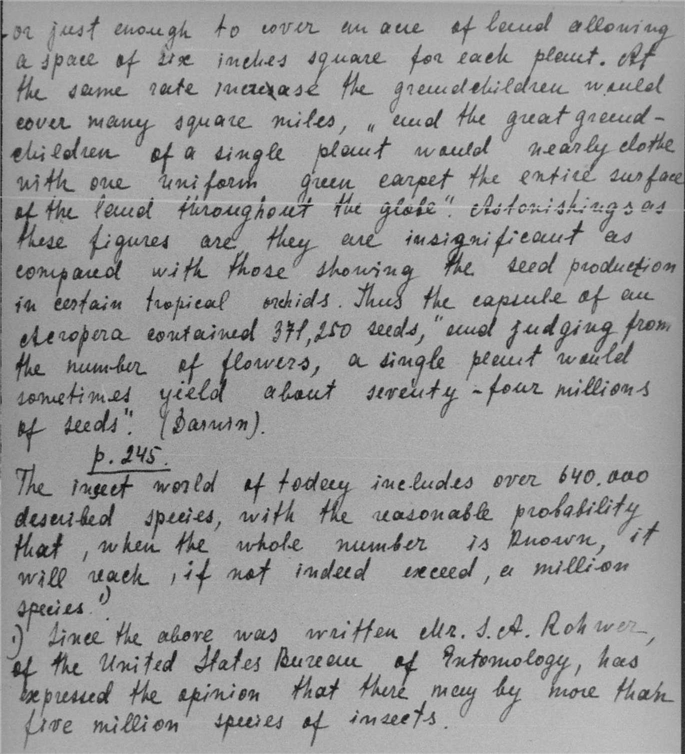 or just enough to cover an acre of land allowing
a space of six inches square for each plant. At
the same rate increase the grandchildren would
cover many square miles, „and the great grand-
children of a single plant would nearly clothe
with one uniform green carpet the entire surface
of the land throughout the globe". Astonishings as
these figures are, they are insignificant as
compared with those showing the seed production
in certain tropical orchids. Thus the capsule of an
Acropera contained 371,250 seeds, "and judging from
the number of flowers, a single plant would
sometimes yield about seventy-four millions
of seeds". (Darwin).
p. 245.
The insect world of today includes over 640.000
described species, with the reasonable probability
that, when the whole number is known, it
will reach, if not indeed exceed, a million
species.¹)
¹) Since the above was written Mr. S.A. Rohwer,
of the United States Bureau of Entomology, has
expressed the opinion that there may by more than
five million species of insects.